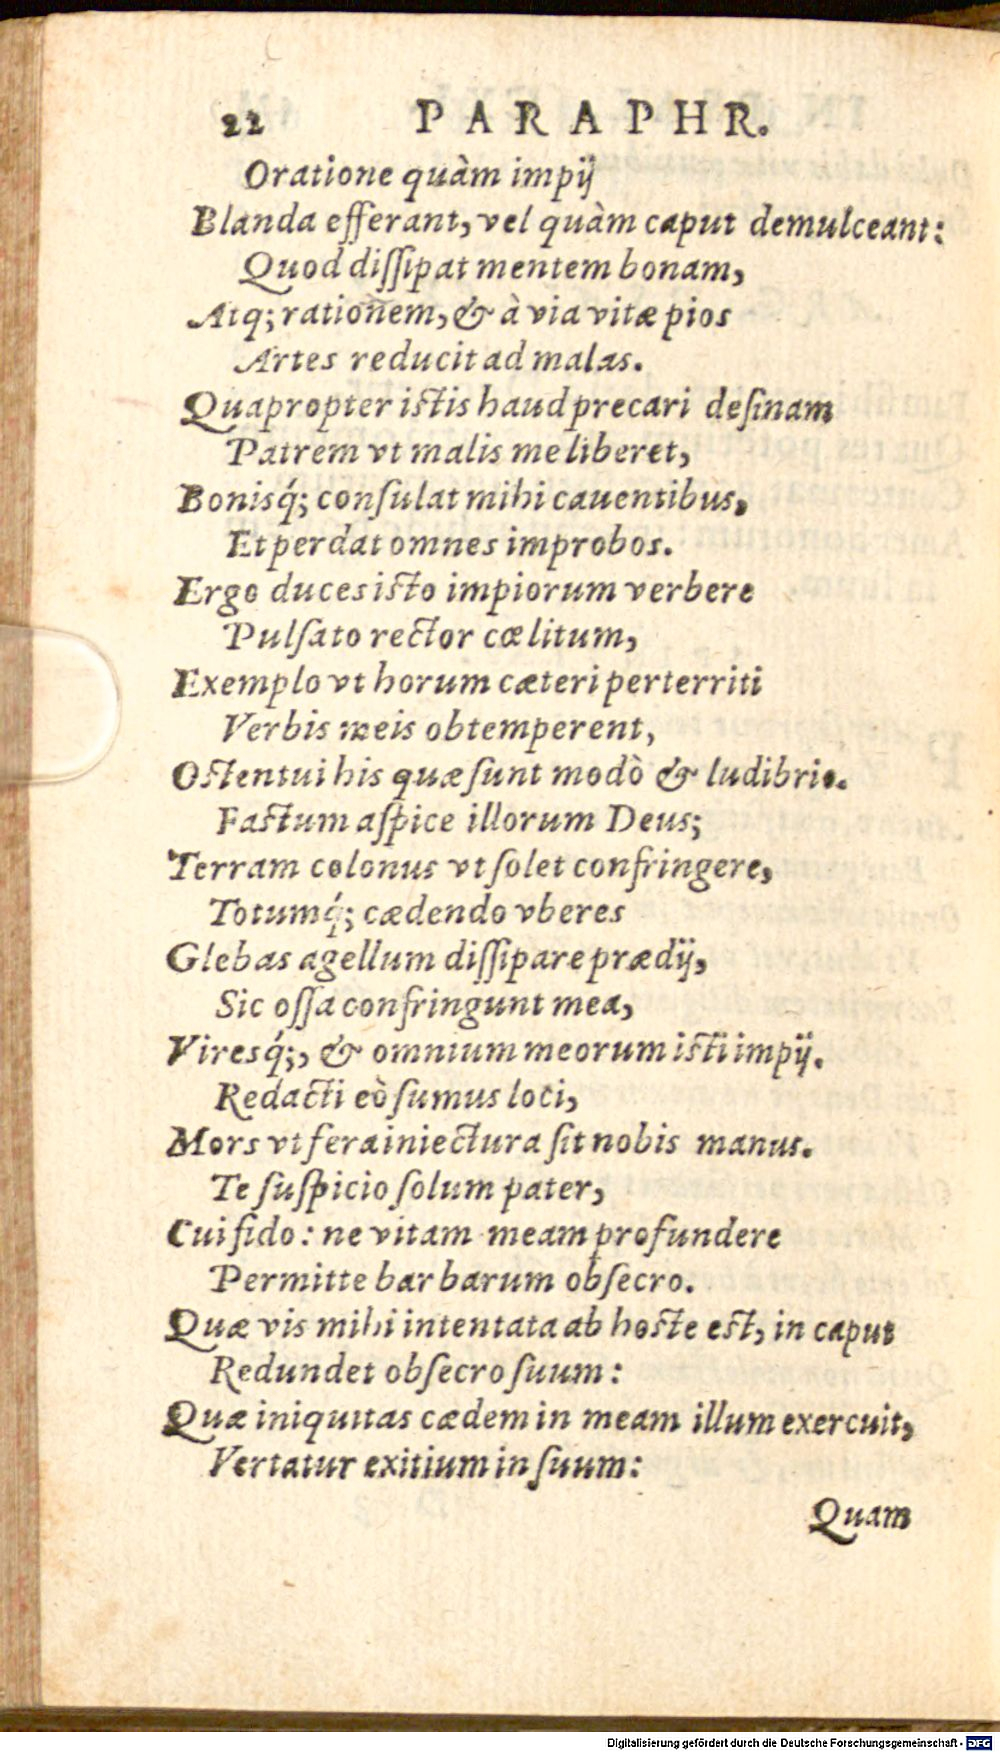 22 PARAPHR.
Oratione quàm impij
Blanda efferant, vel quàm caput demulceant:
Quod dissipat mentem bonam,
Atq; rationem, & à via vitæ pios
Artes reducit ad malas.
Quapropter istis haud precari desinam
Patrem vt malis me liberet,
Bonisq́; consulat mihi cauentibus,
Et perdat omnes improbos.
Ergo duces isto impiorum verbere
Pulsato rector cælitum,
Exemplo vt horum cæteri perterriti
Verbis meis obtemperent,
Ostentui his quæ sunt modò & ludibrio.
Factum aspice illorum Deus;
Terram colonus vt solet confringere,
Totumq́; cædendo vberes
Glebas agellum dissipare prædij,
Sic ossa confringunt mea,
Viresq́;, & omnium meorum isti impij.
Redacti eò sumus loci,
Mors vt fera iniectura sit nobis manus.
Te suspicio solum pater,
Cui fido: ne vitam meam profundere
Permitte barbarum obsecro.
Quæ vis mihi intentata ab hoste est, in caput
Redundet obsecro suum:
Quæ iniquitas cædem in meam illum exercuit,
Vertatur exitium in suum:
Quam
Digitalisierung gefördert durch die Deutsche Forschungsgemeinschaft - DFG